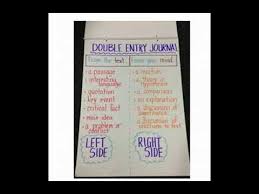 DOUBLE ENTRY JOURNAL
From the text...
From your mind...
• a passage
• interesting language
• quotation
• key event
• critical fact
• main idea
• a problem or conflict
• a reaction
• a theory or hypothesis
• a comparison
• an explanation
• a discussion of
• a discussion of
LEFT
SIDE
RIGHT
SIDE